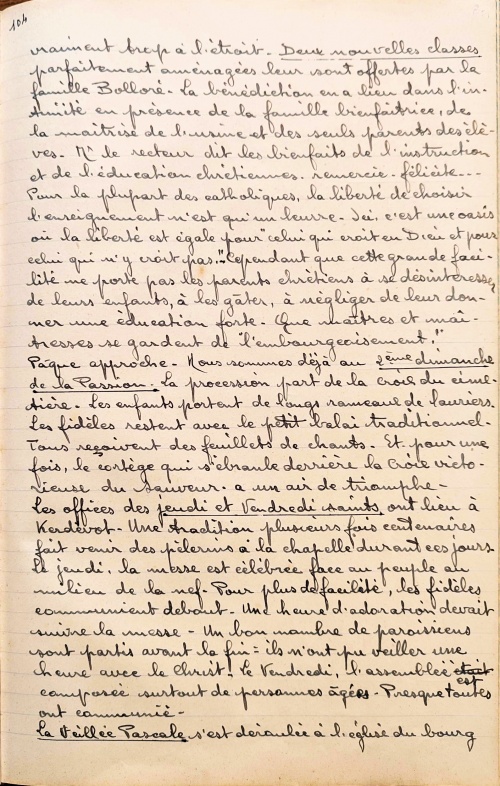 104
vraiment trop à l'étroit. Deux nouvelles classes
parfaitement aménagées leur sont offertes par la
famille Bolloré. La bénédiction en a lieu dans l'in-
timité en présence de la famille bienfaitrice, de
la maîtrise de l'usine et des seuls parents des élè-
ves. Mr le recteur dit les bienfaits de l'instruction
et de l'éducation chrétiennes. remercie. félicite...
Pour la plupart des catholiques, la liberté de choisir
l'enseignement n'est qu'un leurre. Ici, c'est une oasis
où la liberté est égale pour "celui qui croit en Dieu et pour
celui qui n'y croit pas". Cependant que cette grande faci-
lité ne porte pas les parents chrétiens à se désintéresser
de leurs enfants, à les gâter, à négliger de leur don-
ner une éducation forte. Que maîtres et maî-
tresses se gardent de "l'embourgeoisement!"
Pâque approche. Nous sommes déjà au 2ème dimanche
de la Passion. La procession part de la croix du cime-
tière. Les enfants portent de longs rameaux de lauriers.
Les fidèles restent avec le petit balai traditionnel.
Tous reçoivent des feuillets de chants. Et pour une
fois, le cortège qui s'ébranle derrière la Croix victo-
rieuse du Sauveur. a un air de triomphe.
Les offices des jeudi et Vendredi saints ont lieu à
Kerdévot. Une tradition plusieurs fois centenaires
fait venir des pèlerins à la chapelle durant ces jours.
Le jeudi, la messe est célébrée face au peuple au
milieu de la nef. Pour plus de facilité, les fidèles
communient debout. Une heure d'adoration devait
suivre la messe. Un bon nombre de paroissiens
sont partis avant la fin: ils n'ont pu veiller une
heure avec le Christ. Le Vendredi, l'assemblée était est
composée surtout de personnes âgées. Presque toutes
ont communié.
La Veillée Pascale s'est déroulée à l'église du bourg